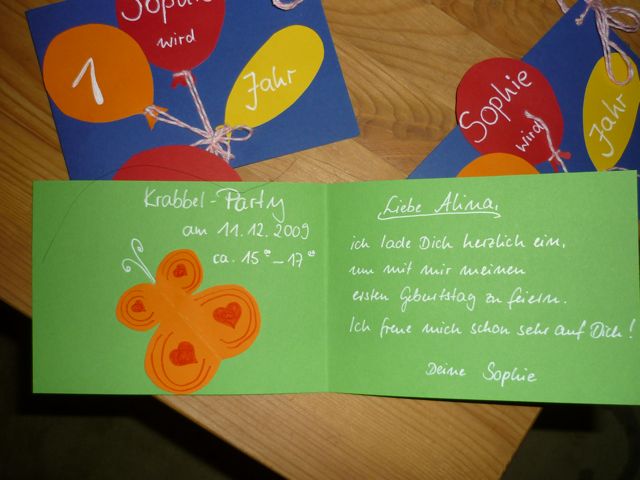 Sophie
wird
1
Jahr
Sophie
wird
Jahr
Krabbel-Party
am 11.12.2009
ca. 15°°-17°°
Liebe Alina,
ich lade Dich herzlich ein,
um mit mir meinen
ersten Geburtstag zu feiern.
Ich freue mich schon sehr auf Dich!
Deine Sophie